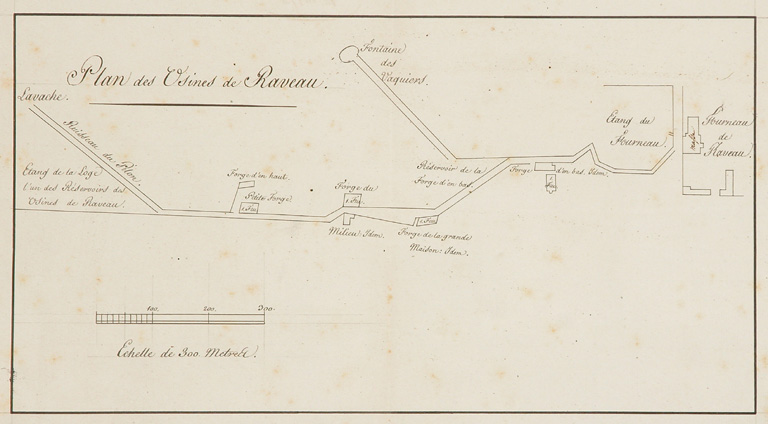 Plan des Usines de Raveau.
Lavache.
Ruisseau du Pilon.
Fontaine
des
Vaquiers.
Etang du
Fourneau.
Fourneau
de
Raveau.
Etang de la Loge
l'un des Réservoirs des
Usines de Raveau.
Forge d'en haut.
Petite Forge.
Forge du
Milieu: Idem.
Réservoir de la
Forge d'en bas.
Forge
d'en bas. Idem.
Forge de la grande
Maison: Idem.
100.
200.
300.
Echelle de 300 Metres.